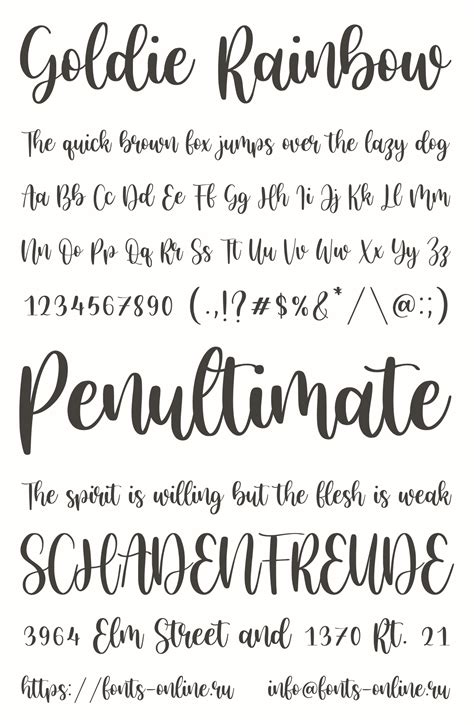 Goldie Rainbow
The quick brown fox jumps over the lazy dog
Aa Bb Cc Dd Ee Ff Gg Hh Ii Jj Kk Ll Mm
Nn Oo Pp Qq Rr Ss Tt Uu Vv Ww Xx Yy Zz
1234567890 (.,!?#$%&*/\@:;)
Penultimate
The spirit is willing but the flesh is weak
SCHADENFREUDE
3964 Elm Street and 1370 Rt. 21
https://fonts-online.ru info@fonts-online.ru